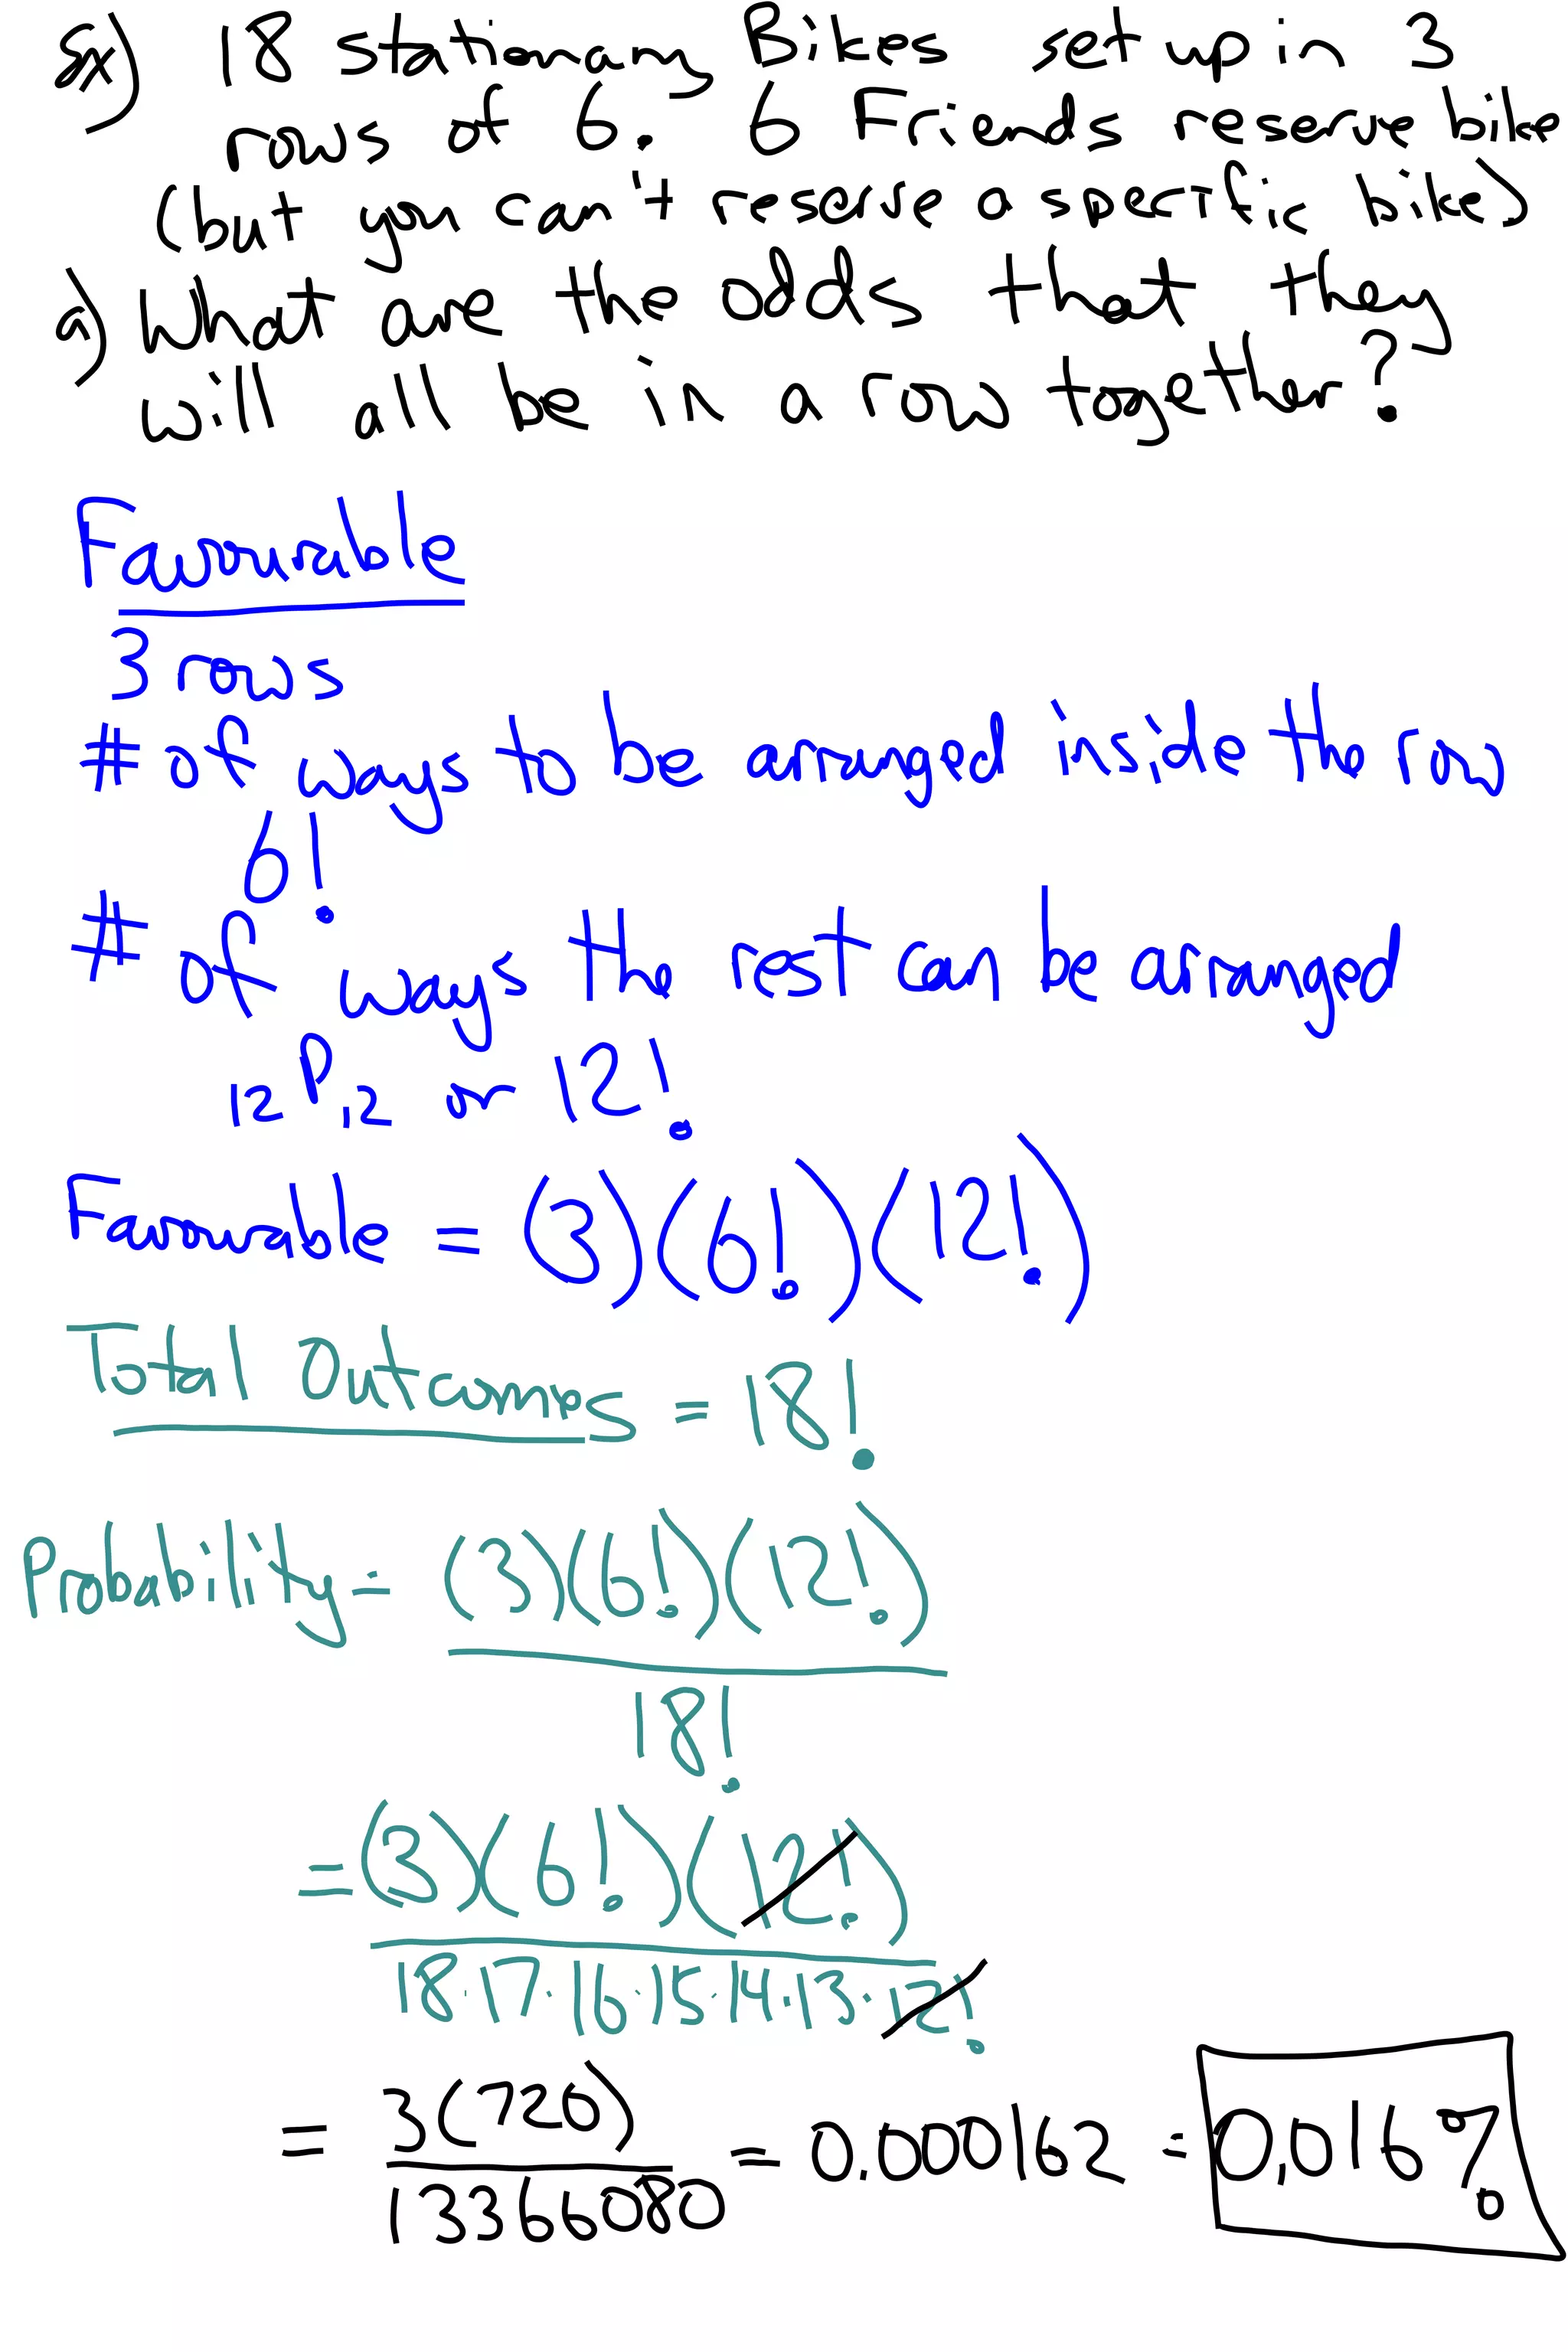 ex) 18 stationary Bikes set up in 3
rows of 6. 6 Friends reserve bike
(but you can't reserve a specific bike)
a) What are the odds that they
will all be in a row together?
Favourable
3 rows
# of ways to be arranged inside the row
6!
# of ways the rest can be arranged
12P12 or 12!
Favourable = (3)(6!)(12!)
Total Outcomes = 18!
Probability = (3)(6!)(12!)
18!
= (3)(6!)(12!)
18·17·16·15·14·13·12!
= 3(720) = 0.000162 = 0.016%
13366080